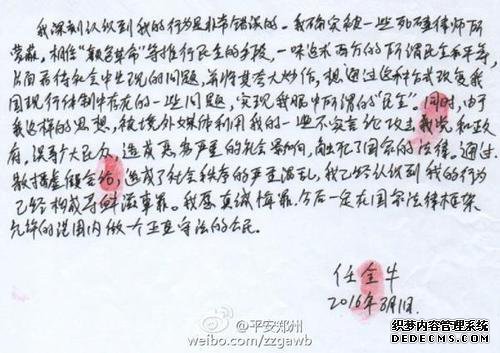 我深刻认识到我的行为是非常错误的。我确实被一些死磕律师所
蒙蔽,相信"颜色革命"等推行民主的手段,一味追求西方的所谓民主和平等,
片面看待社会中出现的问题,并将其夸大炒作,想通过这种方式改变我
国现行体制中存在的一些问题,实现我眼中所谓的"民主"。同时,由于
我这样的思想,被境外媒体利用我的一些不实言论攻击我党和政
府。误导广大民众,造成恶劣严重的社会影响,触犯了国家的法律。通过
散播虚假言论,造成了社会秩序的严重混乱,我已经认识到我的行为
已经构成寻衅滋事罪。我愿真诚悔罪,今后一定在国家法律框架
允许的范围内做一个正真守法的公民。
任全牛
2016年8月1日.
@平安郑州
weibo.com/zzgawb
织梦内容管理系统
DEDECMS.COM